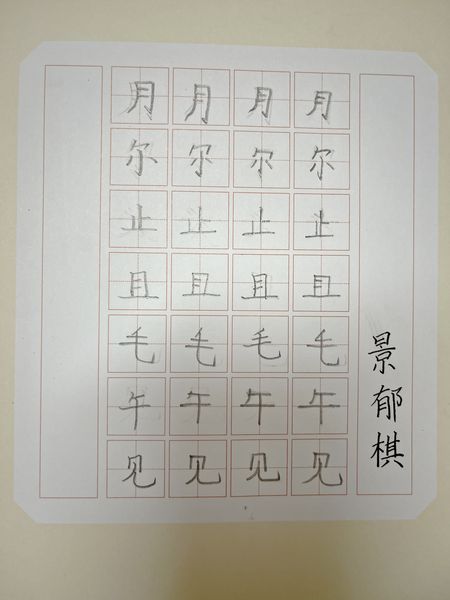 月月月月
尔尔尔尔
止止止止
且且且且
毛毛毛毛
午午午午
见见见见
景郁棋